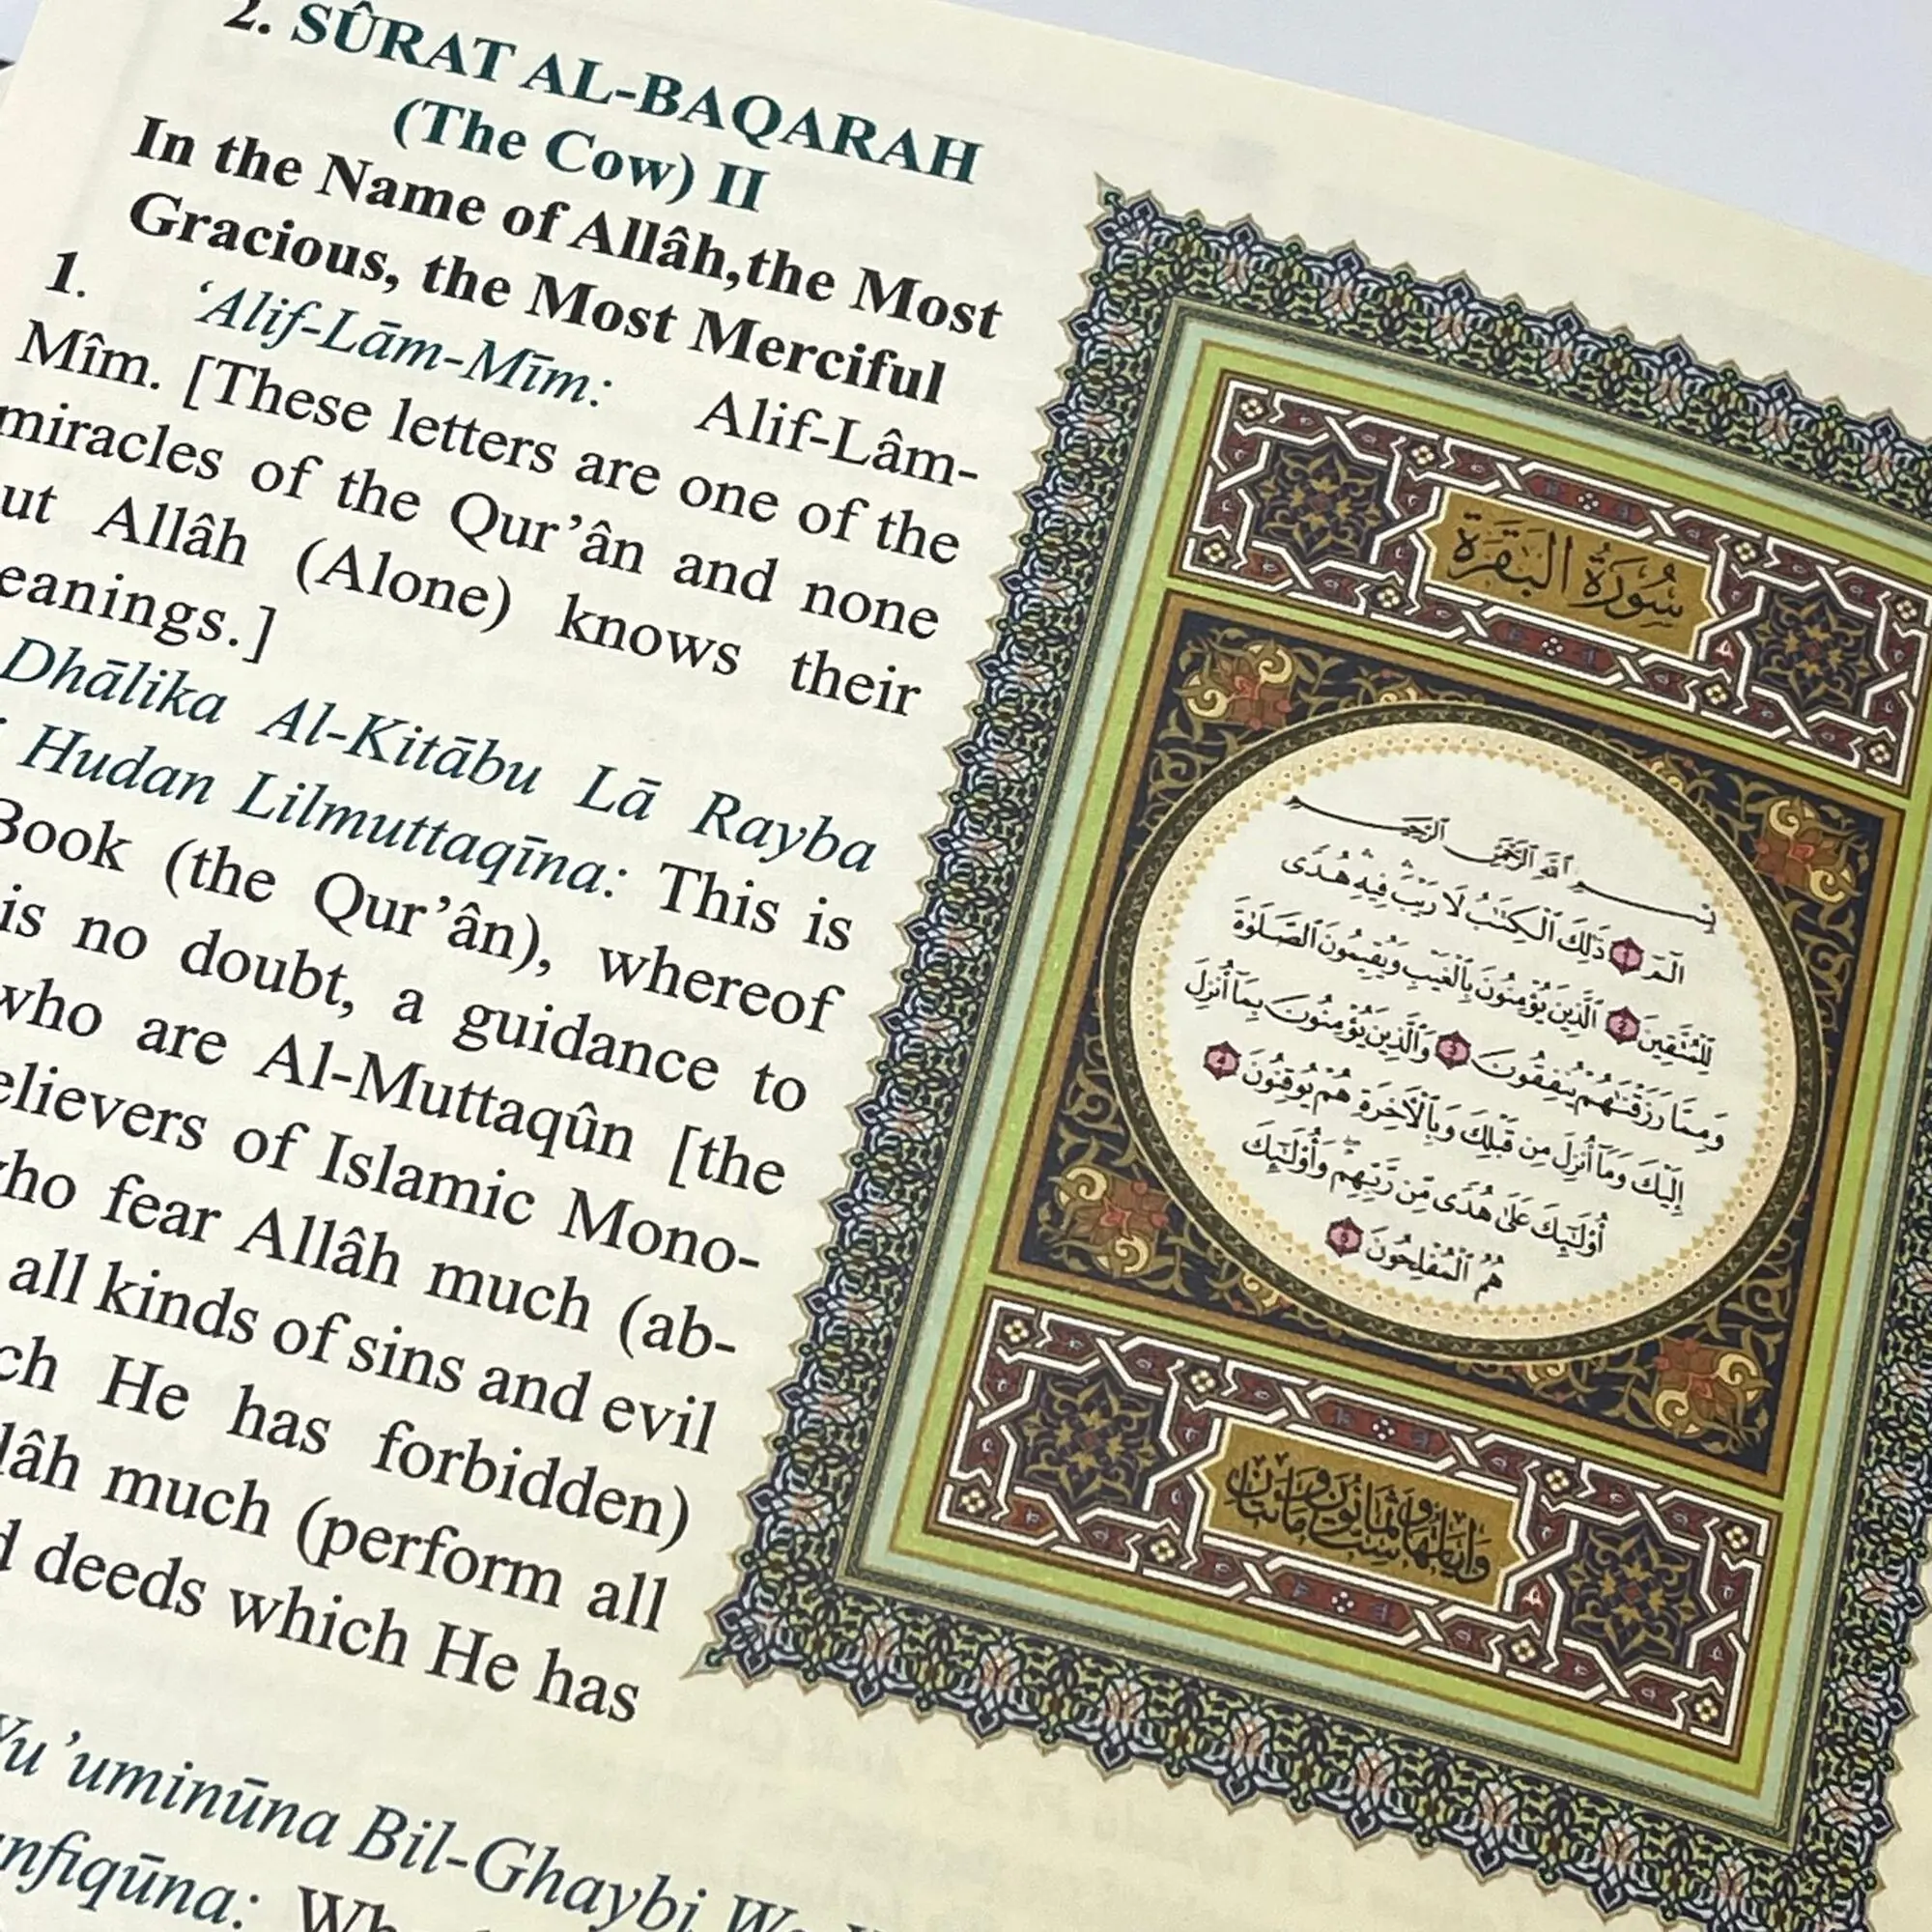 2. SÛRAT AL-BAQARAH
(The Cow) II
In the Name of Allâh,the Most
Gracious, the Most Merciful
1. ‘Alif-Lām-Mīm: Alif-Lâm-
Mîm. [These letters are one of the
miracles of the Qur’ân and none
ut Allâh (Alone) knows their
eanings.]
Dhālika Al-Kitābu Lā Rayba
Hudan Lilmuttaqīna: This is
Book (the Qur’ân), whereof
is no doubt, a guidance to
who are Al-Muttaqûn [the
elievers of Islamic Mono-
ho fear Allâh much (ab-
all kinds of sins and evil
ch He has forbidden)
lâh much (perform all
d deeds which He has
Yu’uminūna Bil-Ghaybi
nfiqūna:
سُورَةُ البَقَرَةِ
بِسْمِ ٱللَّهِ ٱلرَّحْمَٰنِ ٱلرَّحِيمِ
الٓمٓ ١ ذَٰلِكَ ٱلْكِتَٰبُ لَا رَيْبَ ۛ فِيهِ ۛ هُدًى
لِّلْمُتَّقِينَ ٢ ٱلَّذِينَ يُؤْمِنُونَ بِٱلْغَيْبِ وَيُقِيمُونَ ٱلصَّلَوٰةَ
وَمِمَّا رَزَقْنَٰهُمْ يُنفِقُونَ ٣ وَٱلَّذِينَ يُؤْمِنُونَ بِمَآ أُنزِلَ
إِلَيْكَ وَمَآ أُنزِلَ مِن قَبْلِكَ وَبِٱلْأَخِرَةِ هُمْ يُوقِنُونَ ٤
أُو۟لَٰٓئِكَ عَلَىٰ هُدًى مِّن رَّبِّهِمْ ۖ وَأُو۟لَٰٓئِكَ
هُمُ ٱلْمُفْلِحُونَ ٥
وَآيَاتُهَا سِتٌّ وَثَمَانُونَ وَمِائَتَانِ